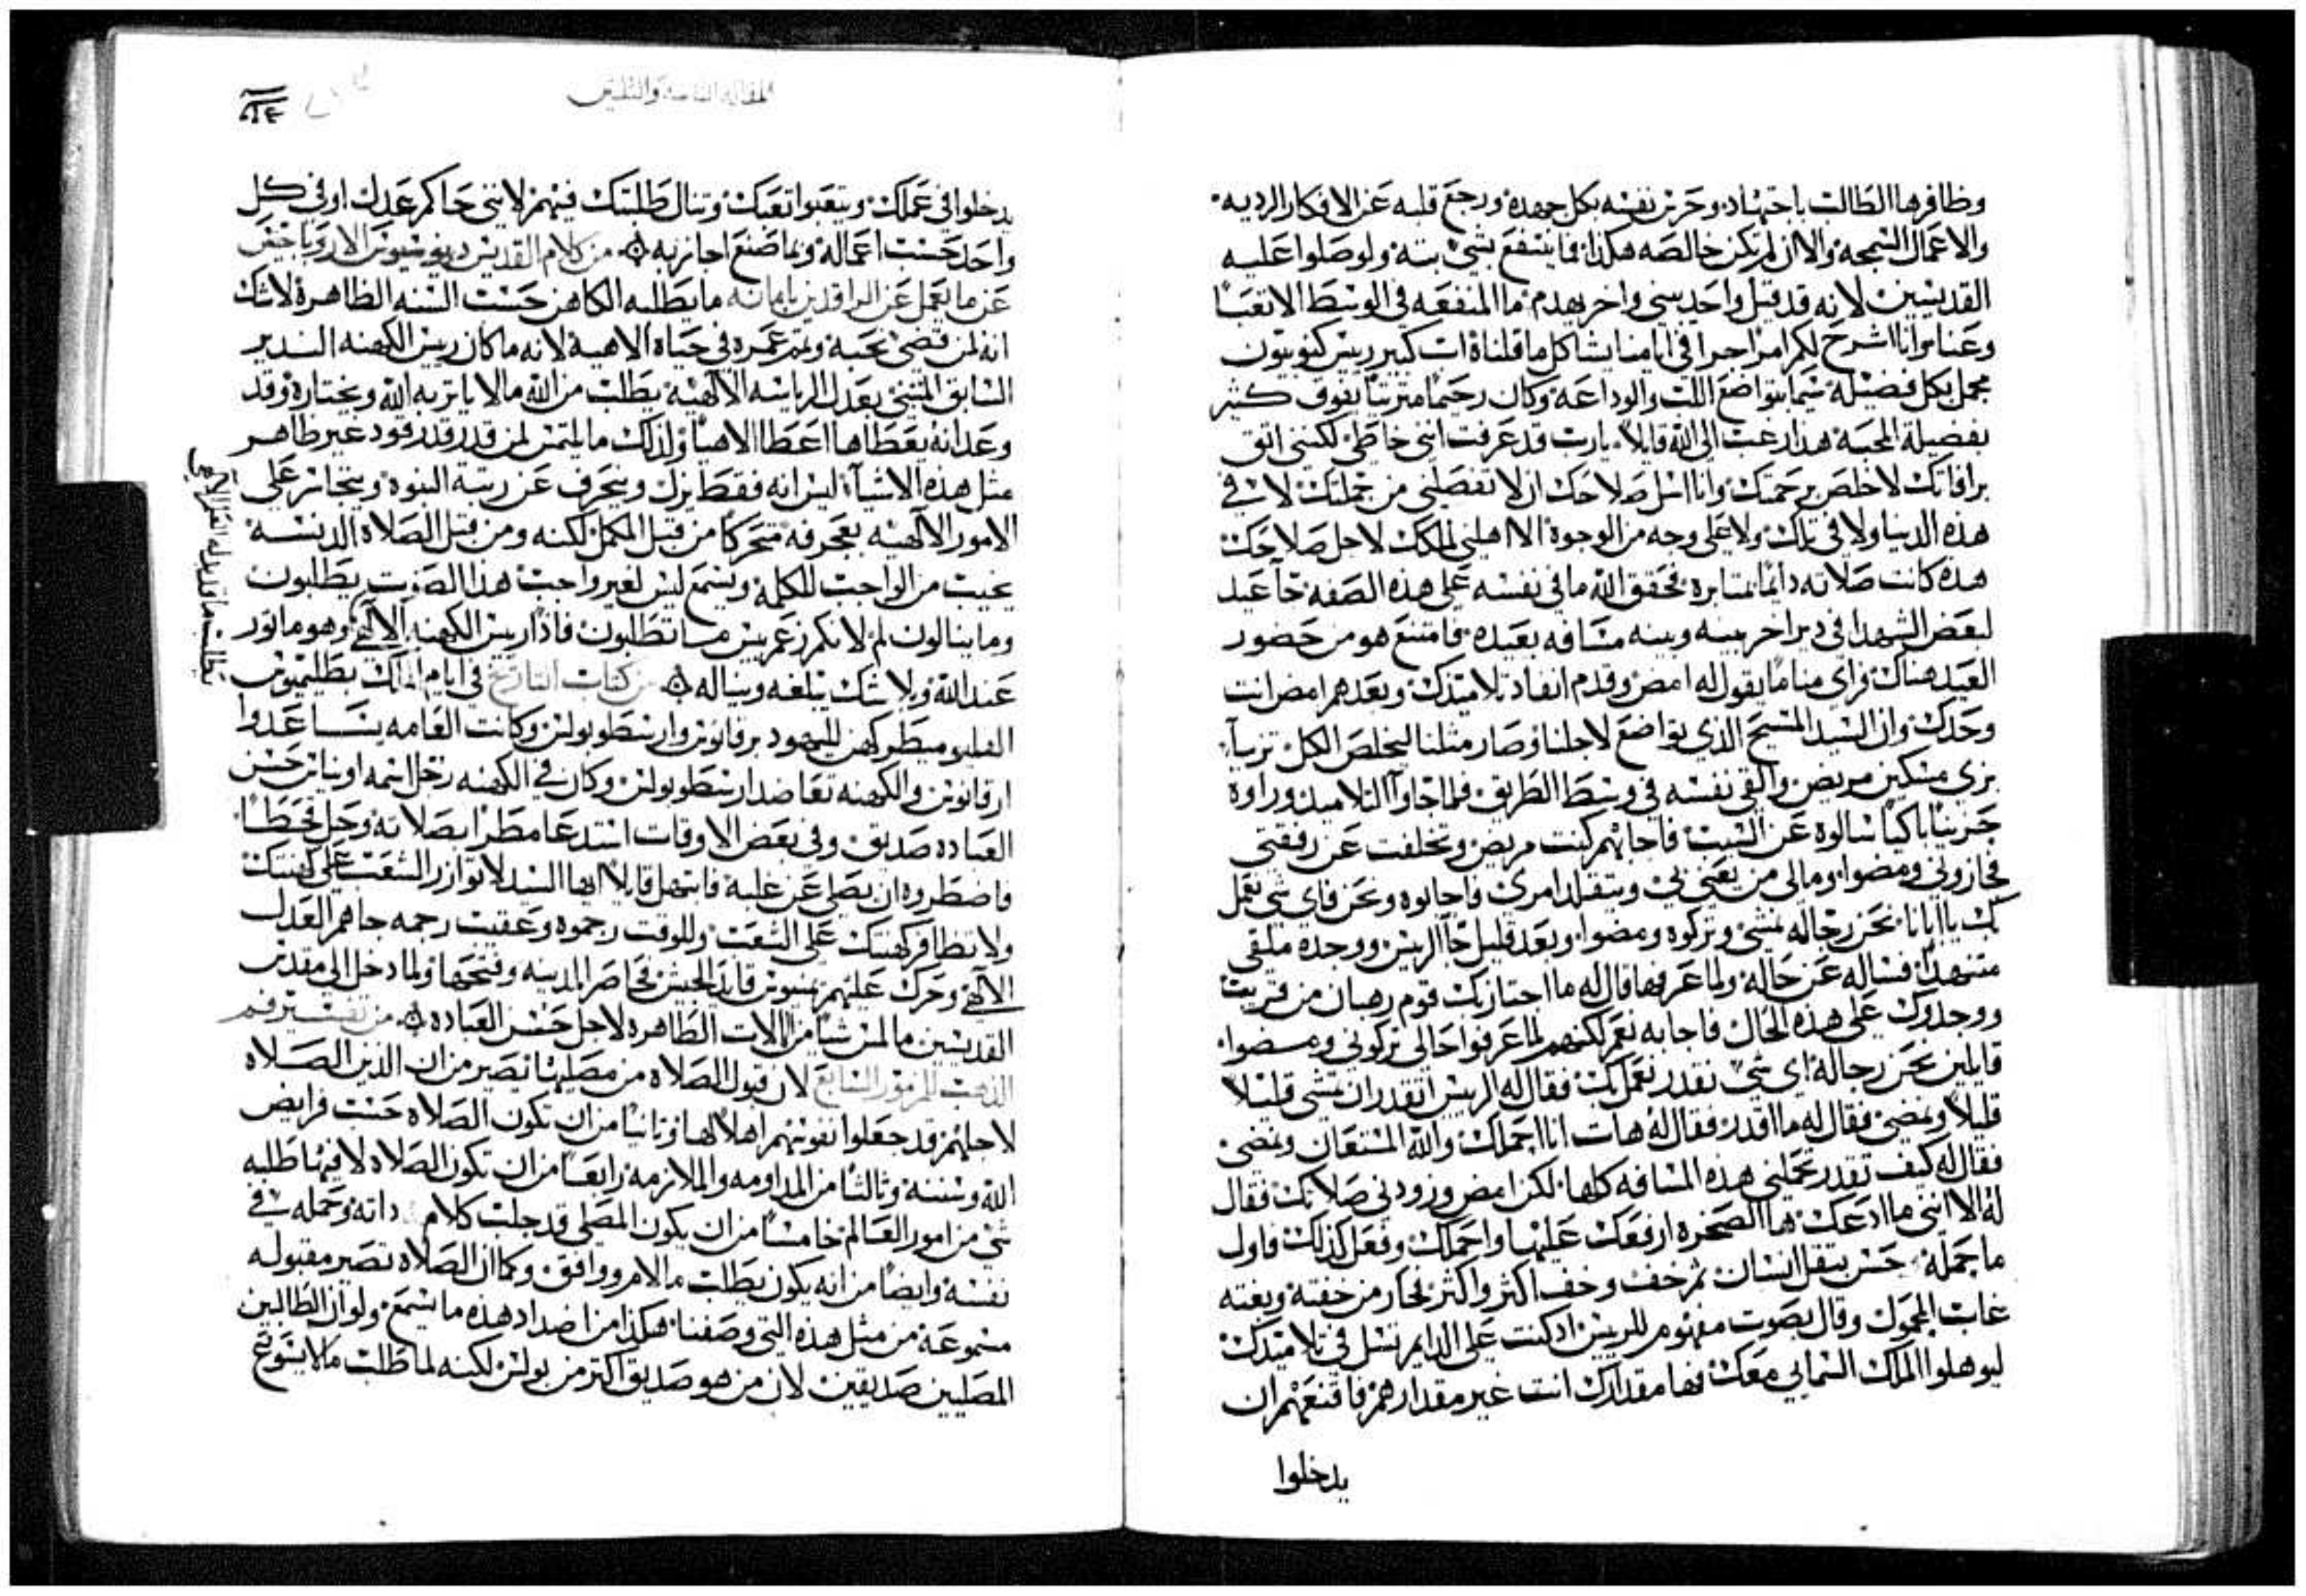 وظافرها الطالب باجتهاد وحرس نفسه بكل جهده ورجع قلبه عن الافكار الرديه
والاعمال السمجه والا ان لم تكن خالصه هكذا فما ينتفع بشي بته ولو صلوا عليه
القديسين لانه قد قيل واحد يبني واخر يهدم ما المنفعه في الوسط الا تعبًا
وعنا وانا اشرح لكم امرًا جرا في ايامنا يشاكل ما قلناه ات كبير ريس كنوبيون
مجمل بكل فضيلة سيما بتواضع اللب والوداعه وكان رحيمًا مترتيًا يفوق كثير
بفضيلة المحبه هذا رغب الى الله قايلاً يارب قد عرفت انني خاطي لكنني اتق
برافاتك لاخلص برحمتك وانا اسل صلاحك ان لا تفصلني من جملتك لا في
هذه الدنيا ولا في تلك ولا على وجه من الوجوه الا اهلني لملكك لاجل صلاحك
هذه كانت صلاته دائمًا بمثابره فحقق الله ما في نفسه على هذه الصفه جا عيد
لبعض الشهدا في دير اخر بينه وبينه مسافه بعيده فامتنع هو من حضور
العيد هناك فراى منامًا يقول له امض وقدم انفاد تلاميذك وبعدهم امض انت
وحدك وان السيد المسيح الذي تواضع لاجلنا وصار مثلنا ليخلص الكل تزيا
بزي مسكين مريض والقى نفسه في وسط الطريق فلما جاوا التلاميذ وراوه
حزينًا باكيًا سالوه عن السبب فاجابهم كنت مريض وتخلفت عن رفقتي
فجازوني ومضوا ومالي من يعتني بي ويتقلد امري فاجابوه ونحن فاي شي نعمل
بك يا ابانا نحن رجاله نمشي وتركوه ومضوا وبعد قليل جا الريس ووجده ملقى
متنهدًا فساله عن حاله ولما عرفها قال له ما اجتاز بك قوم رهبان من قريب
ووجدوك على هذه الحال فاجابه نعم لكنهم لما عرفوا حالي تركوني ومضوا
قايلين نحن رجاله اي شي نقدر نعمل بك فقال له الريس اتقدر ان تمشي قليلاً
قليلاً ونمضي فقال له ما اقدر فقال له هات انا احملك والله المستعان ونمضي
فقال له كيف تقدر تحملني هذه المسافه كلها لكن امض وزودني صلاتك فقال
له الا انني ما ادعك ها الصخره ارفعك عليها واحملك وفعل كذلك فاول
ما حمله حس بثقل انسان ثم خف وخف اكثر واكثر فحار من خفته وبغته
غاب المحمول وقال بصوت مفهوم للريس اذ كنت على الدايم تسل في تلاميذك
ليوهلوا الملك السمايي معك فها مقدارك انت غير مقدارهم فاقنعهم ان
يدخلوا
المقاله والثلثين
يدخلوا في عملك ويتعبوا تعبك وتنال طلبتك فيهم لانني حاكم عدل اوفي كل
واحد حسب اعماله وبما صنع اجازيه من كلام القديس ديونوسيوس الاريوباجيتس
عن ما يعمل عن الراقدين بامانه ما يطلبه الكاهن حسب السنه الظاهرة لا شك
انه لمن قضى نحبه وتم عمره في حياه الاهيه لانه ما كان ريس الكهنه السديد
السابق المتبني بعدل الرياسه الالهيه يطلب من الله ما لا يا تربه الله ويختاره وقد
وعد انه يعطاها اعطا الاهيا ولذلك ما يلتمس لمن قد رقد رقود غير طاهر
مثل هذه الاشيا ليس انه فقط يزل وينحرف عن رتبة النبوه ويتجاسر على
الامور الالهيه بعجرفه متحركًا من قبل المكمل لكنه ومن قبل الصلاه الدنسه
يخيب من الواجب للكلمه ويسمع ليس لغير واجب هذا الصوت يطلبون
وما ينالون لم لانكم زعم بيس ما تطلبون فاذًا ريس الكهنه الالهي وهو ماثور
عند الله وبلا شك يبلغه ويناله من كتاب التاريخ في ايام الملك بطليموس
الفليوميطر كهن لليهود برقانوس وارسطوبولس وكانت العامه يساعدوا
ارقانوس والكهنه تعاضد ارسطوبولس وكان في الكهنه رجل اسمه اونياس حسن
العباده صديق وفي بعض الاوقات استدعا مطرًا بصلاته وحل قحطًا
فاضطروه ان يصلي عن غلبه فابتهل قايلاً ايها السيد لا توازر الشعب على كهنتك
ولا تظافر كهنتك على الشعب وللوقت رجموه وعقيب رجمه جاهم العدل
الالهي وحرك عليهم بنيوس قايد الجيش فحاصر المدينه وفتحها ولما دخل الى مقدس
القديسين ما لمس شيًا من الالات الطاهره لاجل حسن العباده من تفسير فم
الذهب للمزمور السابع لان قبول الصلاه من مصليها تصير من ان الذين الصلاه
لاجلهم قد جعلوا نفوسهم اهلا لها وثانيًا من ان تكون الصلاه حسب فرايض
الله وسننه وثالثًا من المداومه والملازمه رابعًا من ان تكون الصلاه لا فيها طلبه
شي من امور العالم خامسًا من ان يكون المصلي قد جلب كلام ذاته وحمله في
نفسه وايضًا من انه يكون يطلب ما لامر ووافق وكما ان الصلاه تصير مقبوله
مسموعة من مثل هذه التي وصفنا هكذا من اضداد هذه ما يسمع ولو ان الطالبين
المصليين صديقين لان من هو صديق اكثر من بولس لكنه لما طلب ما لا يسوغ